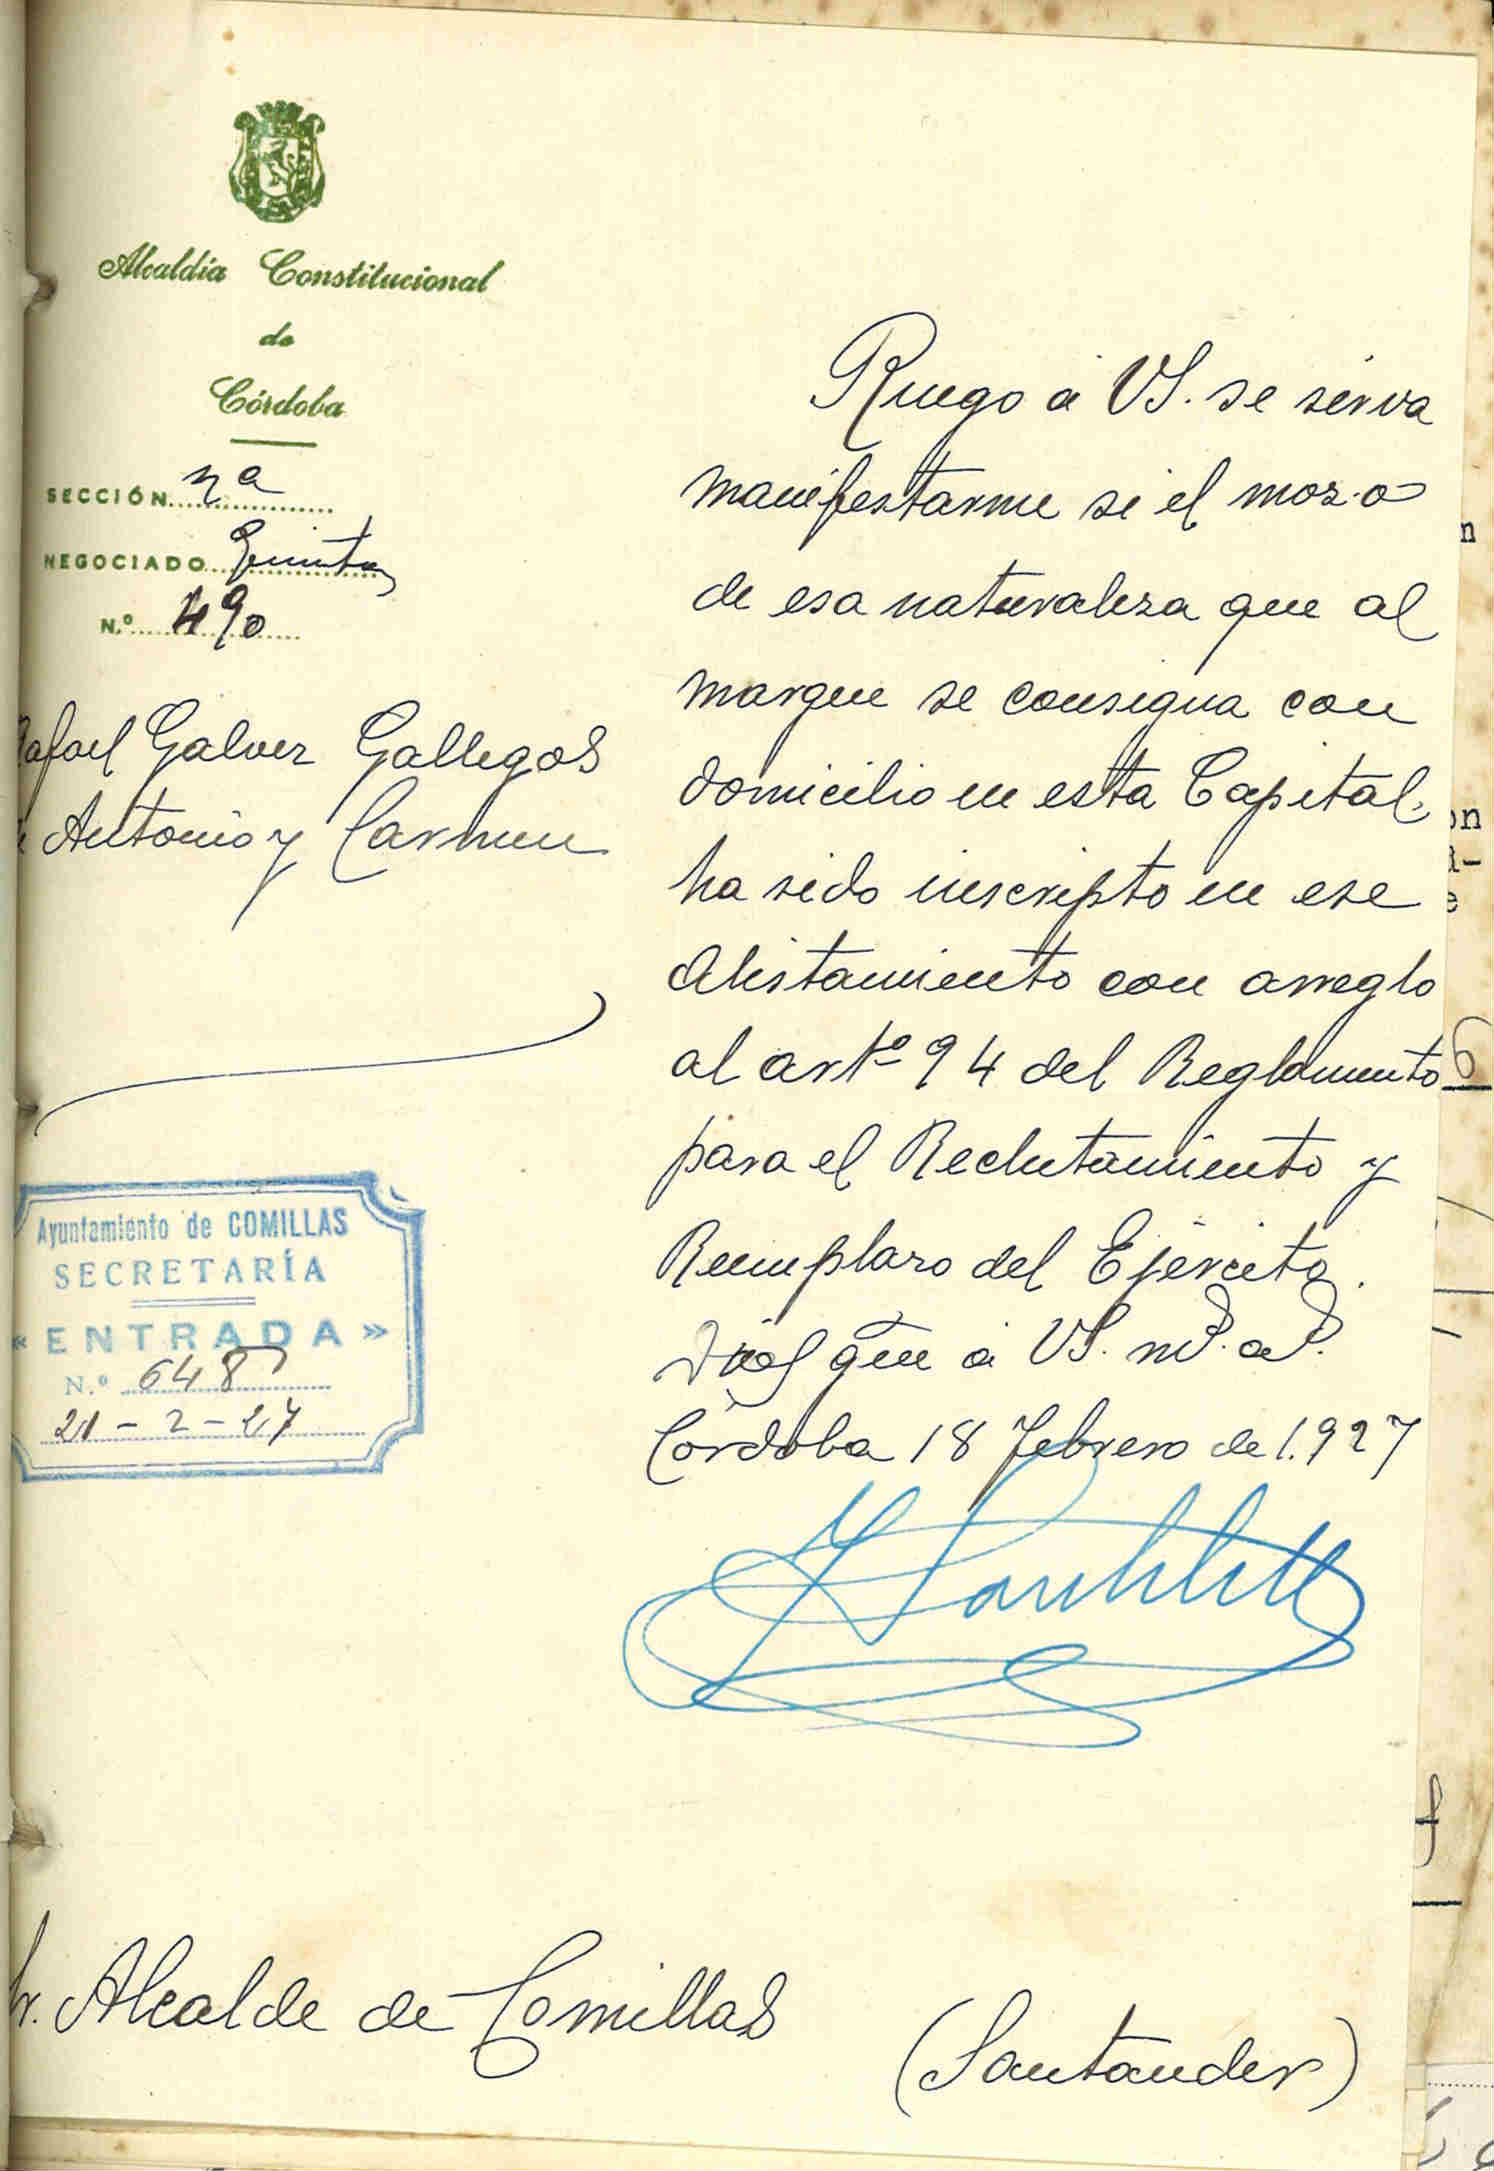 Alcaldía Constitucional
de
Córdoba
SECCIÓN 2ª
NEGOCIADO Quintas
N.º 490
Rafael Galvez Gallegos
Antonio y Carmen
Ayuntamiento de COMILLAS
SECRETARÍA
«ENTRADA»
N.º 648
21-2-27
Ruego á VS. se sirva
manifestarme si el mozo
de esa naturaleza que al
margen se consigna con
domicilio en esta Capital,
ha sido inscripto en ese
Alistamiento con arreglo
al artº 94 del Reglamento
para el Reclutamiento y
Reemplazo del Ejército.
Dios gue á VS. ms. as.
Córdoba 18 Febrero de 1.927
Sr. Alcalde de Comillas
(Santander)